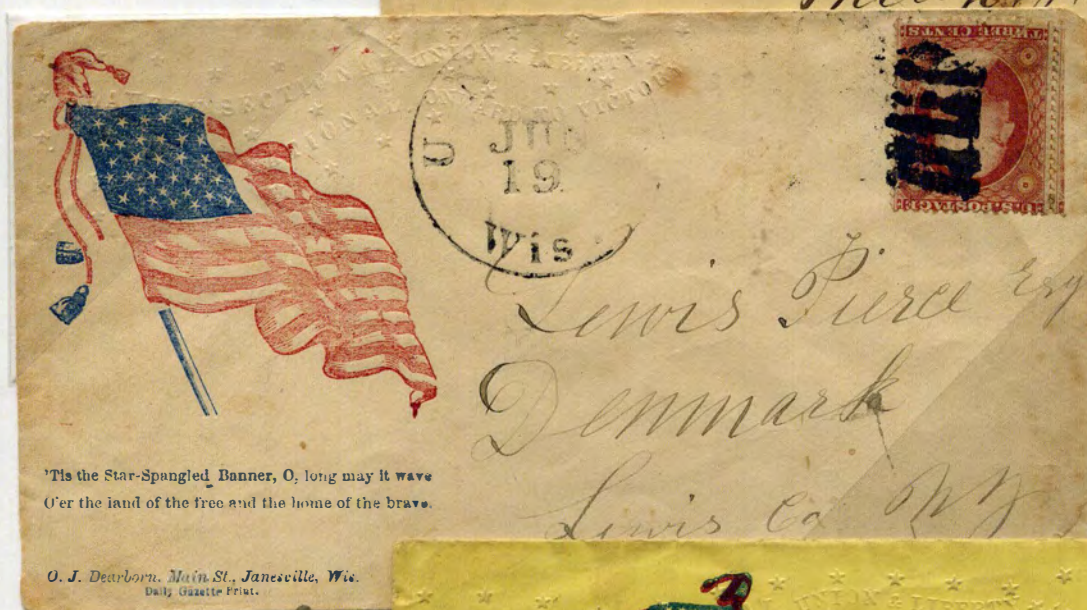 SECTIONAL UNION & LIBERTY
VICTORY
U
JUN
19
Wis.
THREE CENTS
U.S. POSTAGE
Lewis Pierce Esq
Denmark
Lewis Co N Y
'Tis the Star-Spangled Banner, O, long may it wave
O'er the land of the free and the home of the brave.
O. J. Dearborn, Main St., Janesville, Wis.
Daily Gazette Print.
UNION & LIBERTY